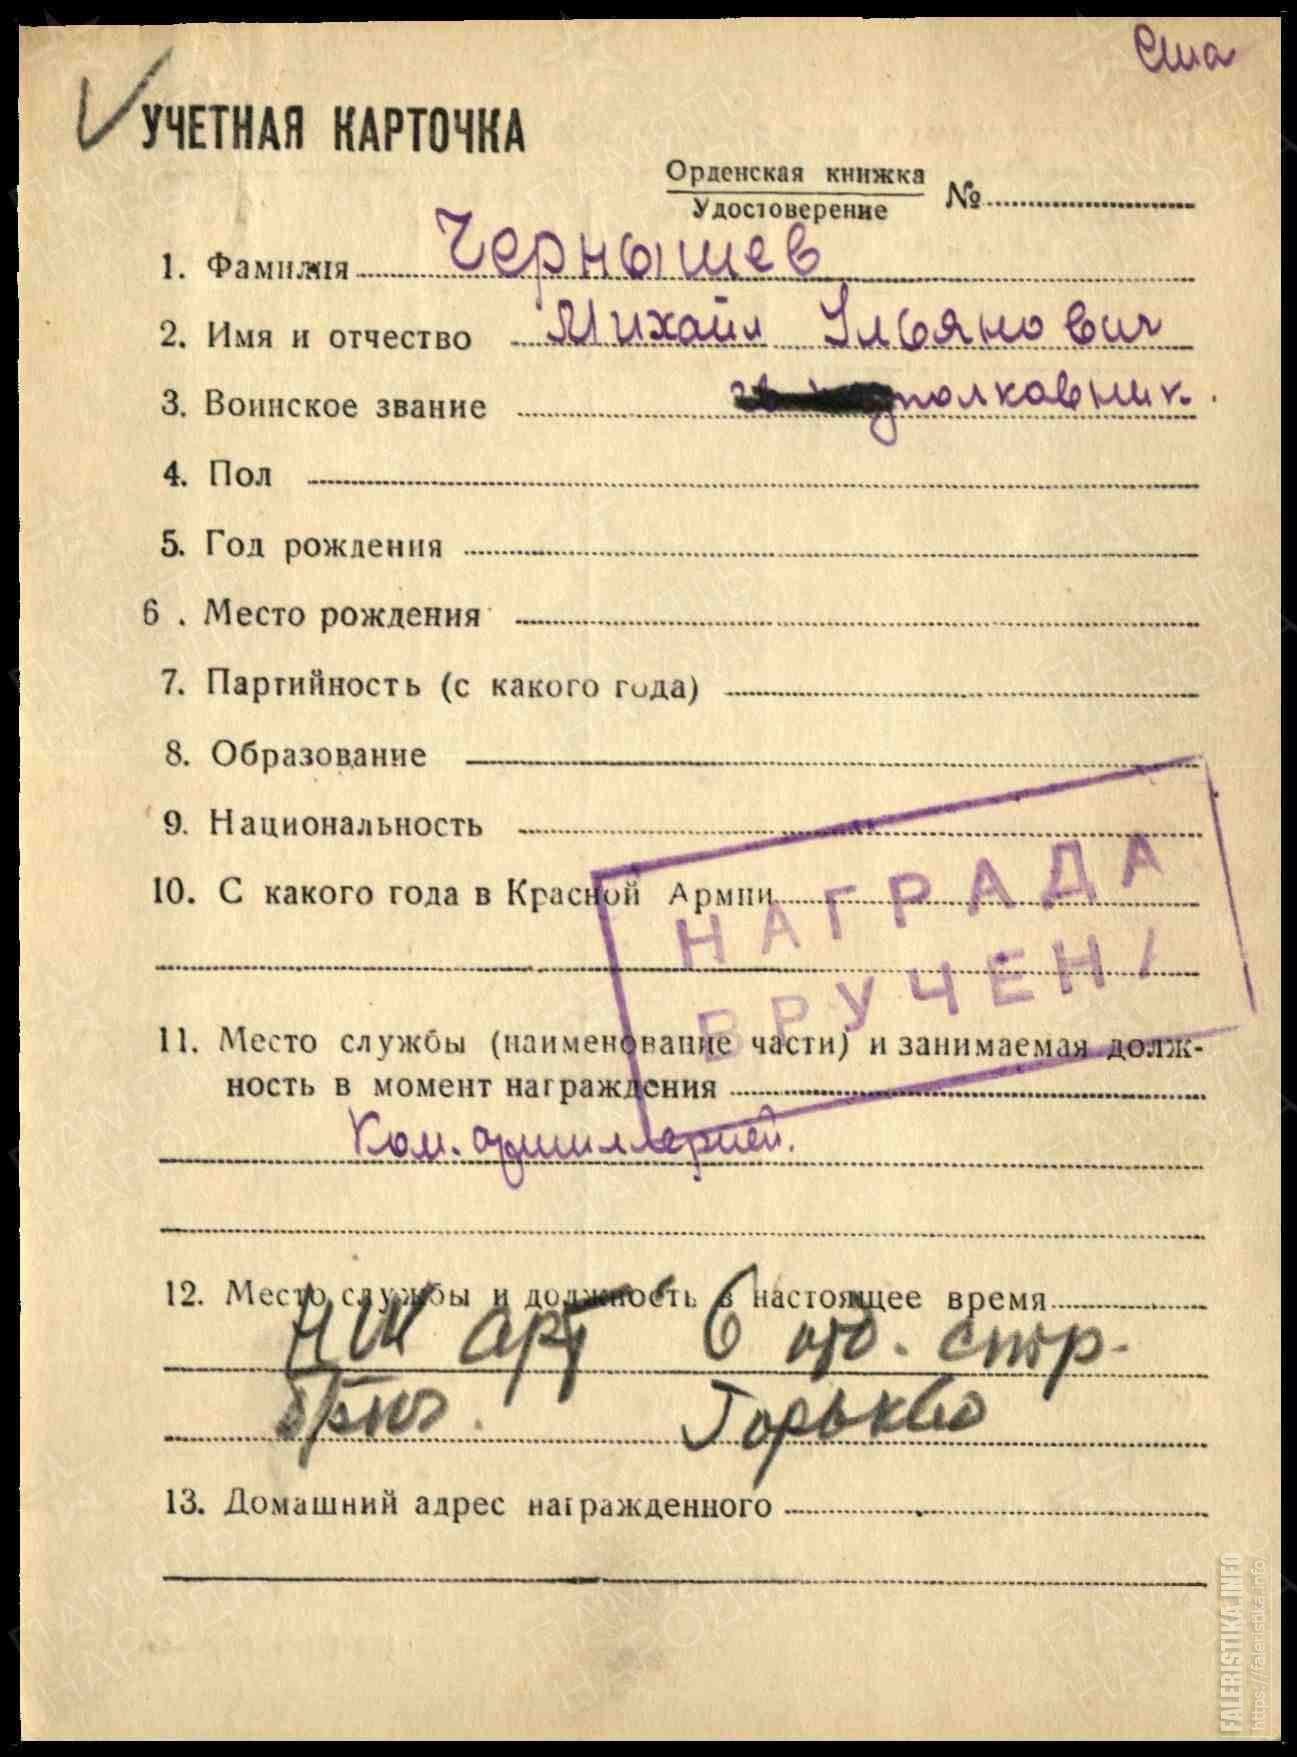 Сша
УЧЕТНАЯ КАРТОЧКА
Орденская книжка
Удостоверение №
1. Фамилия Чернышев
2. Имя и отчество Михаил Ульянович
3. Воинское звание полковник.
4. Пол
5. Год рождения
6 . Место рождения
7. Партийность (с какого года)
8. Образование
9. Национальность
10. С какого года в Красной Армии
НАГРАДА
ВРУЧЕНА
11. Место службы (наименование части) и занимаемая долж-
ность в момент награждения
Ком. артиллерией.
12. Место службы и должность в настоящее время
НШ арт 6 отд. стр.
бриг. Горький
13. Домашний адрес награжденного
FALERISTIKA.INFO
https://faleristika.info
ПАМЯТЬ НАРОДА